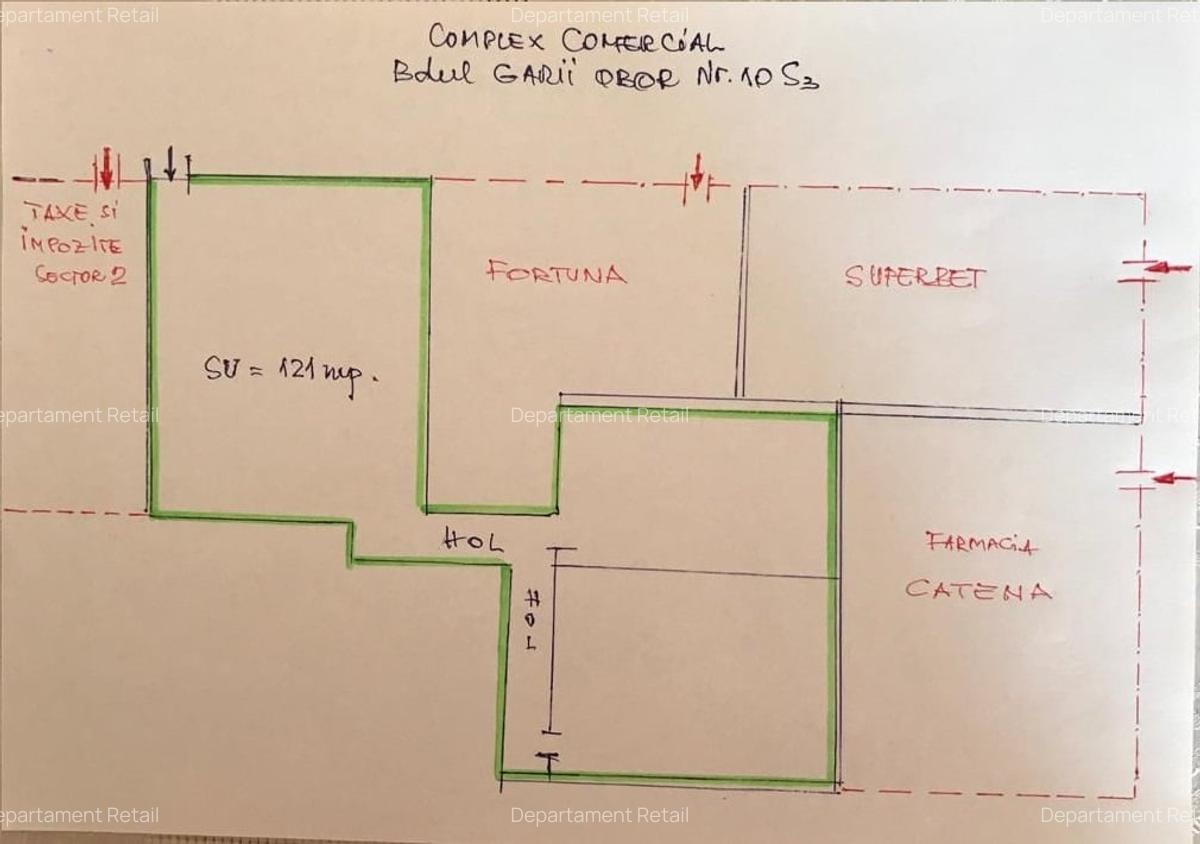 Departament Retail
Departament Retail
Departament Retail
COMPLEX COMERCIAL
Bdul GARII OBOR Nr. 10 S3
TAXE SI
IMPOZITE
SECTOR 2
FORTUNA
SUPERBET
SU = 121 mp.
Departament Retail
Departament Retail
Departament Retail
HOL
HOL
FARMACIA
CATENA
Departament Retail
Departament Retail
Departament Retail